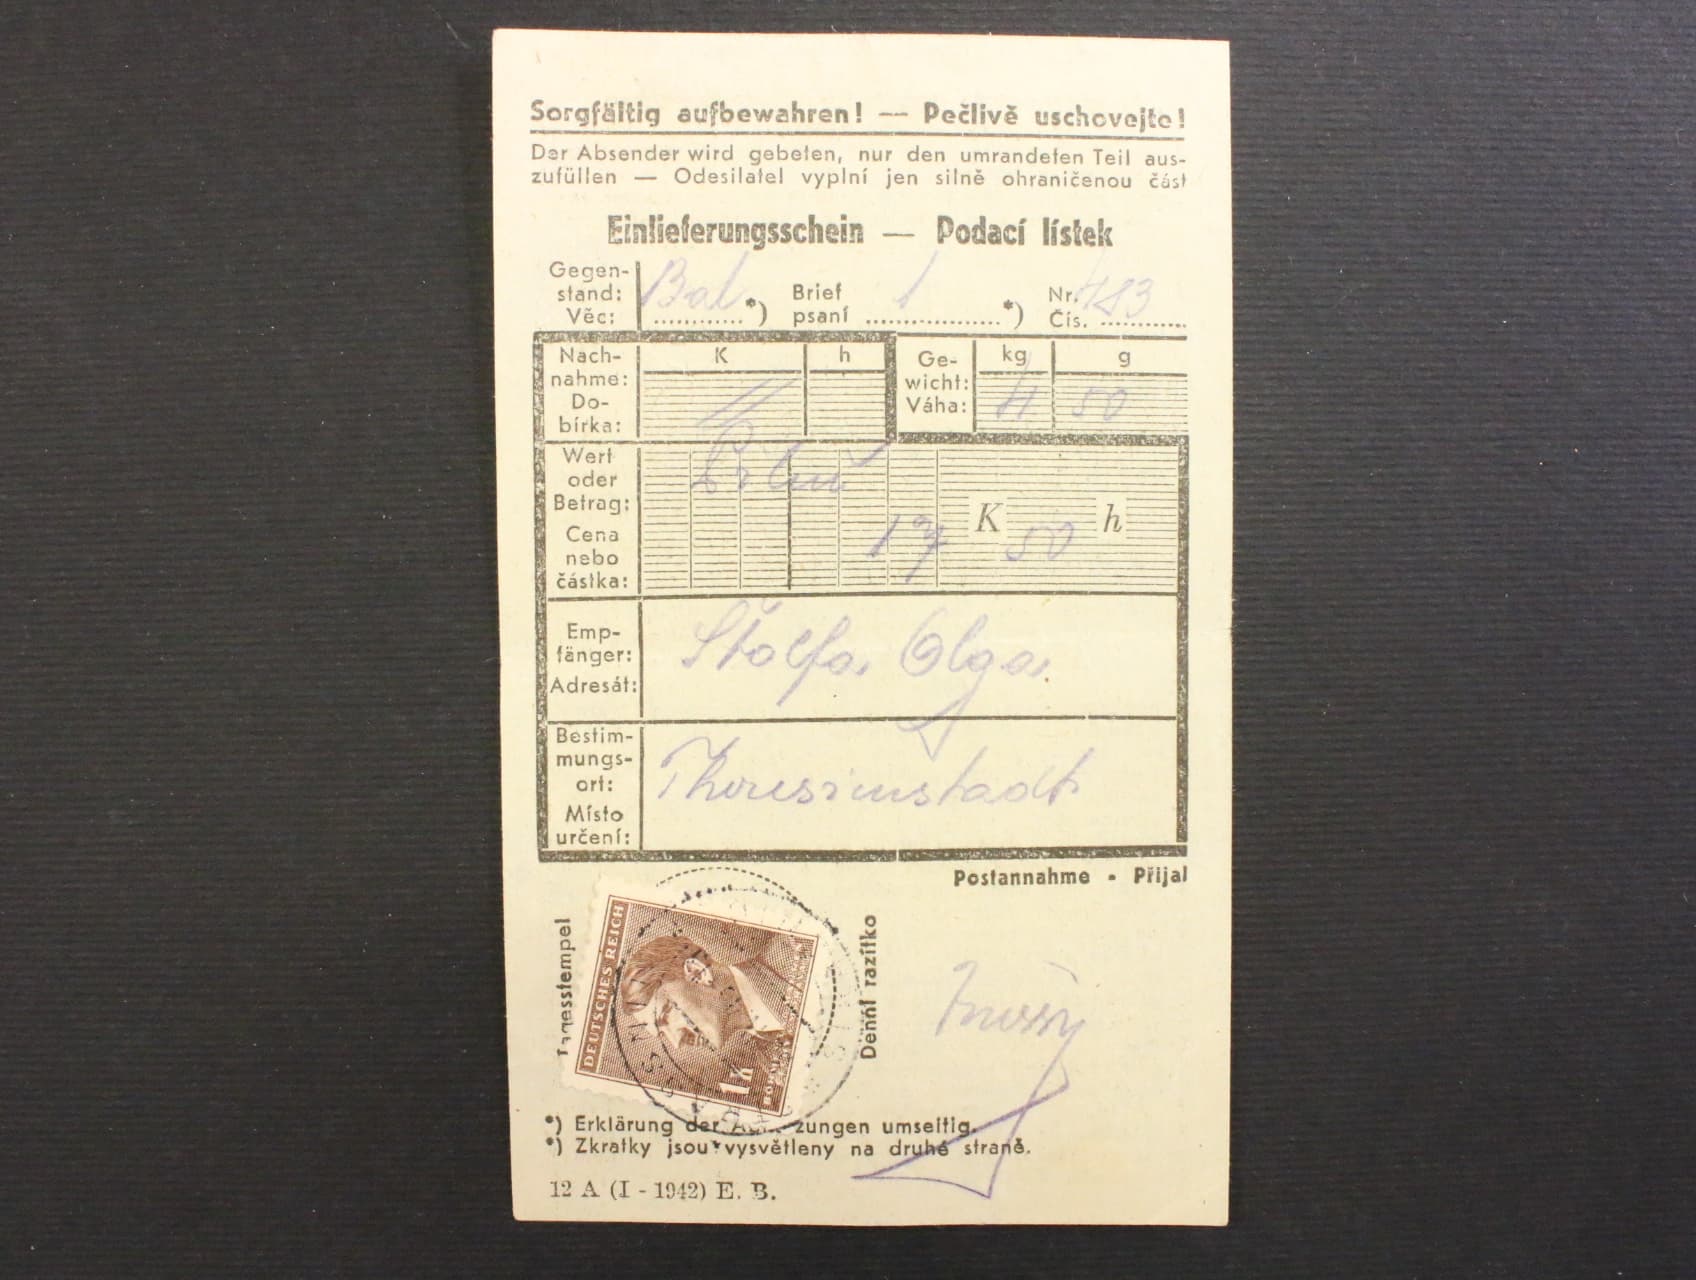 Sorgfältig aufbewahren! — Pečlivě uschovejte!
Der Absender wird gebeten, nur den umrandeten Teil aus-
zufüllen — Odesilatel vyplní jen silně ohraničenou část
Einlieferungsschein — Podací lístek
Gegen-
stand:
Věc:
Bal *)
Brief
psaní
1 *)
Nr.
Čís.
483
Nach-
nahme:
Do-
bírka:
K h
Ge-
wicht:
Váha:
kg g
4 50
Wert
oder
Betrag:
Cena
nebo
částka:
17 K 50 h
Emp-
fänger:
Adresát:
Štolfa Olga
Bestim-
mungs-
ort:
Místo
určení:
Theresienstadt
Postannahme - Přijal
Tagesstempel
DEUTSCHES REICH
1 K
Denní razítko
*) Erklärung der zungen umseitig.
*) Zkratky jsou vysvětleny na druhé straně.
12 A (I - 1942) E. B.